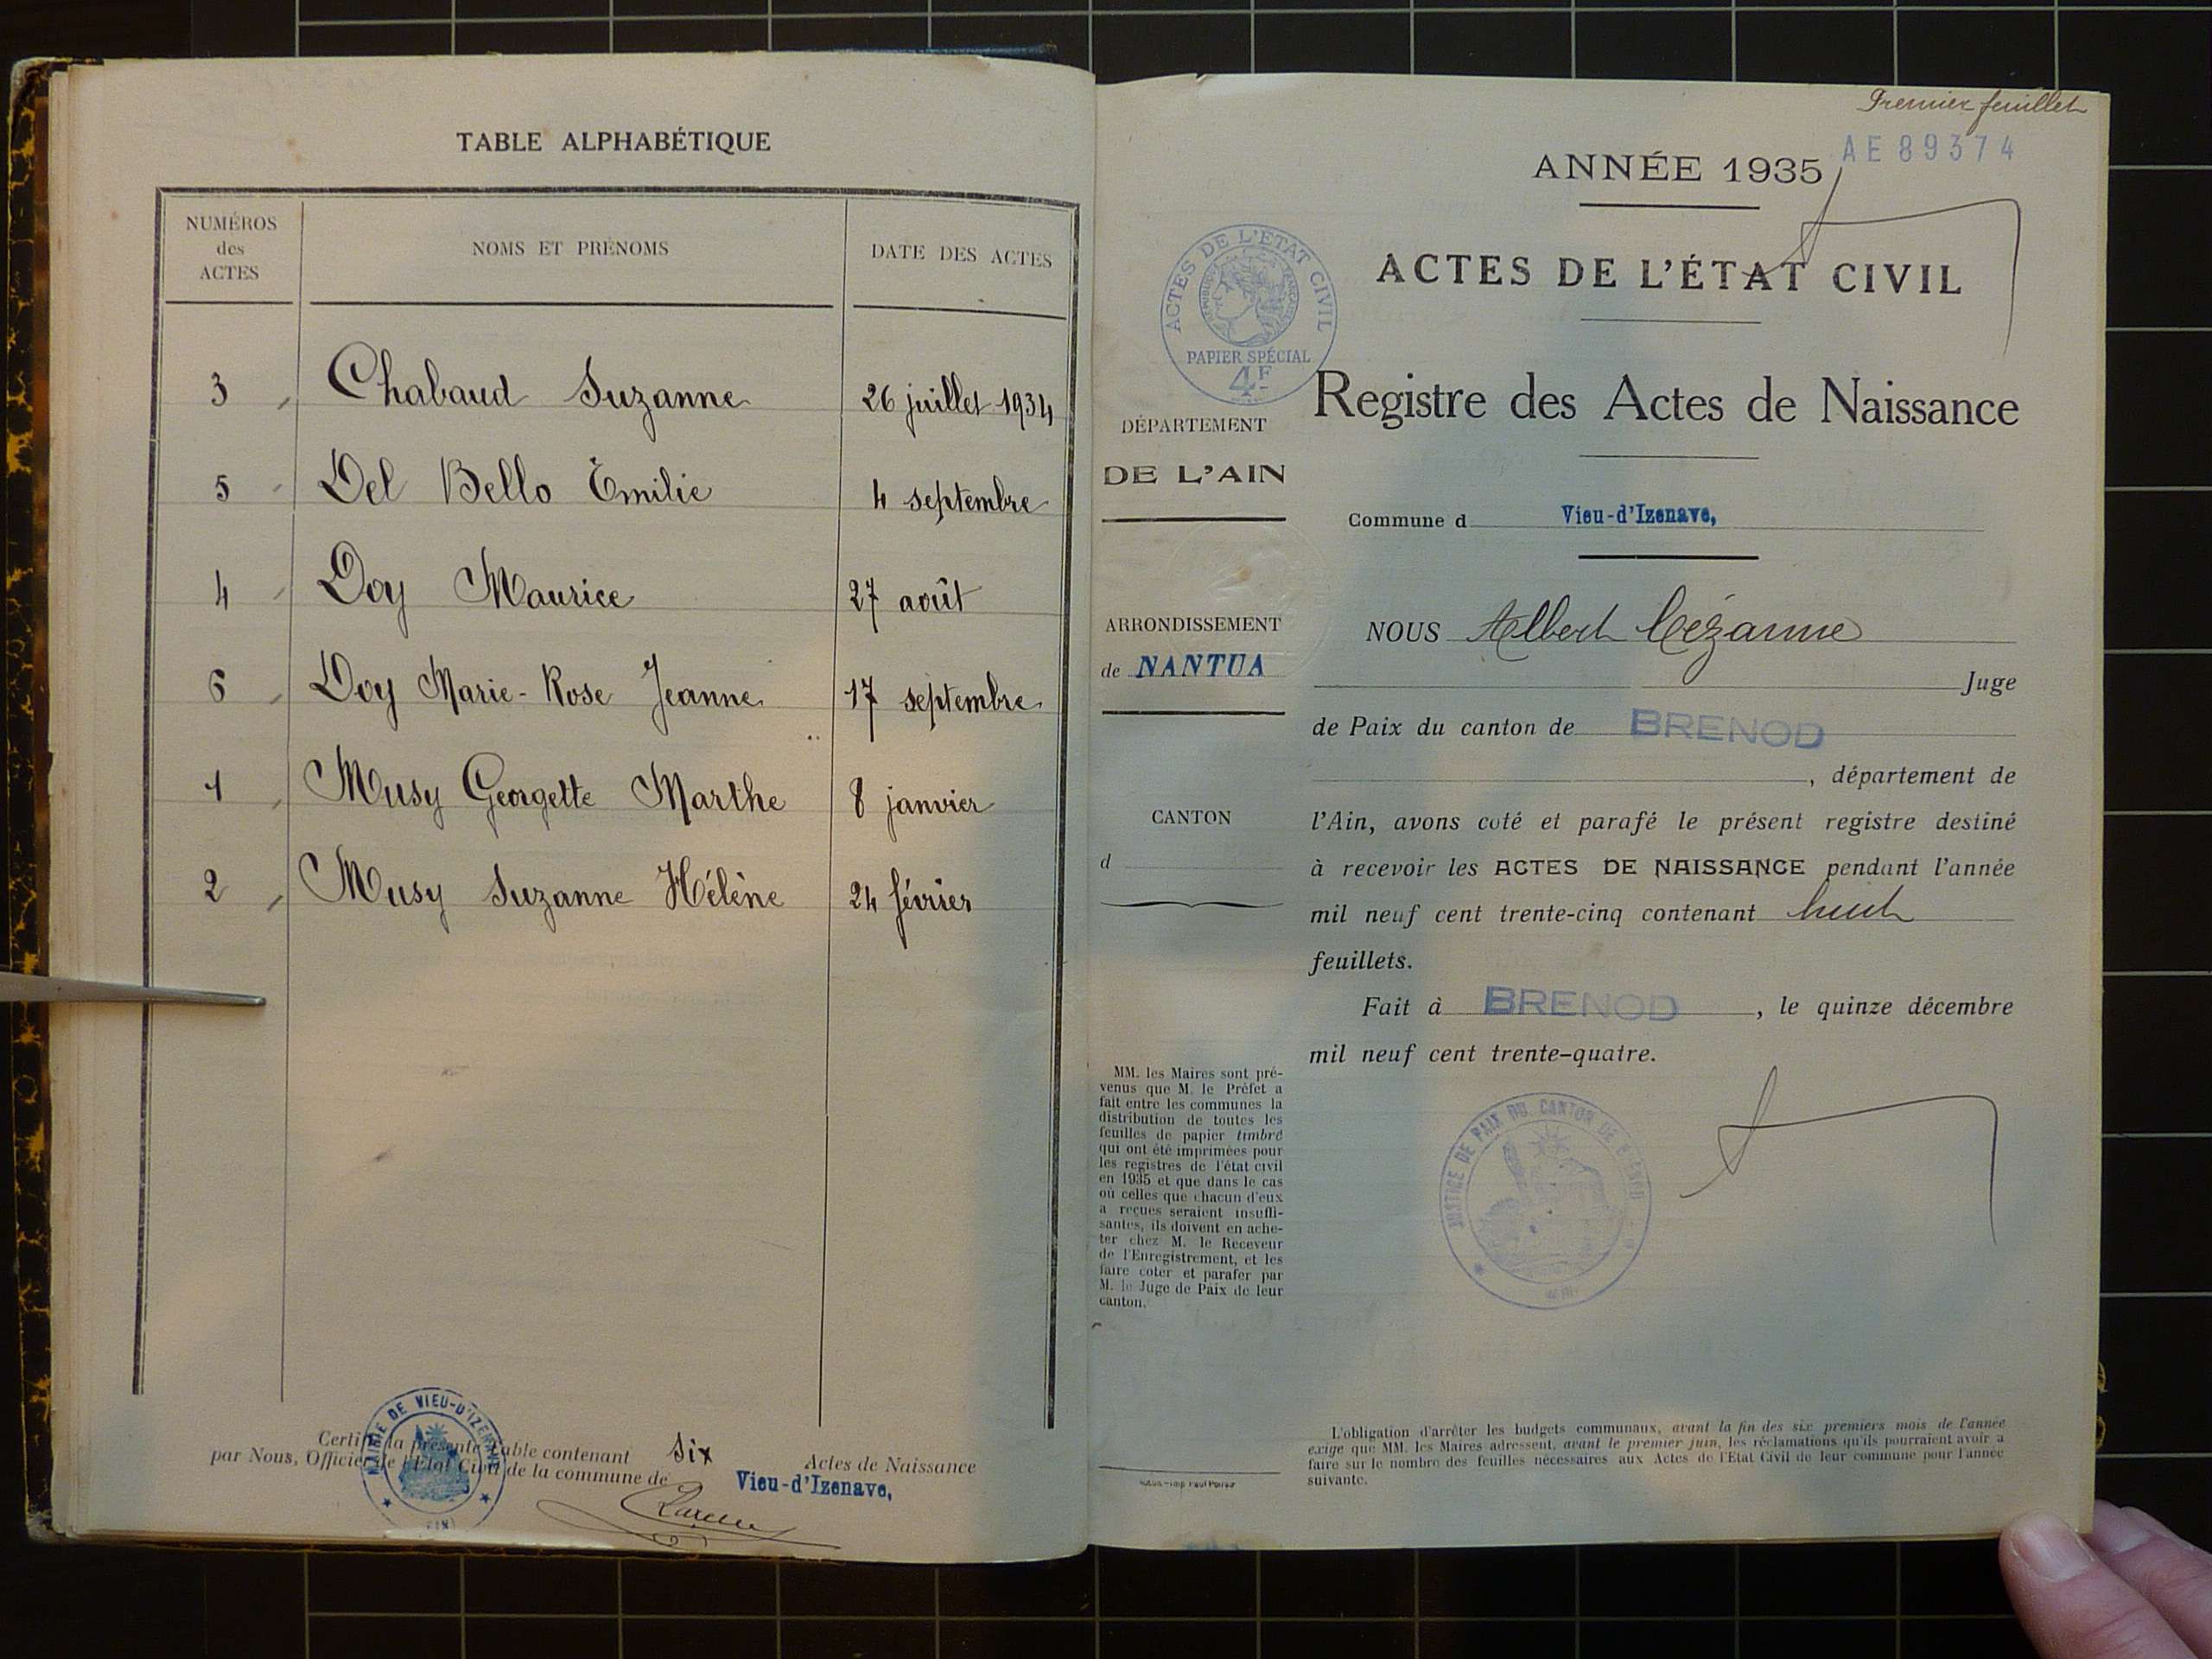 TABLE ALPHABÉTIQUE
NUMÉROS
des
ACTES
NOMS ET PRÉNOMS
DATE DES ACTES
3 Chabaud Suzanne 26 juillet 1934
5 Del Bello Émilie 4 septembre
4 Doy Maurice 27 août
6 Doy Marie-Rose Jeanne 17 septembre
1 Musy Georgette Marthe 8 janvier
2 Musy Suzanne Hélène 24 février
Certifié la présente Table contenant six Actes de Naissance
par Nous, Officier de l'État Civil de la commune de Vieu-d'Izenave,
MAIRIE DE VIEU-D'IZENAVE
(AIN)
Premier feuillet
AE 89374
ANNÉE 1935
ACTES DE L'ÉTAT CIVIL
ACTES DE L'ÉTAT CIVIL
RÉPUBLIQUE FRANÇAISE
PAPIER SPÉCIAL
4F
Registre des Actes de Naissance
DÉPARTEMENT
DE L'AIN
Commune d Vieu-d'Izenave,
ARRONDISSEMENT
de NANTUA
CANTON
d
NOUS Albert Cézanne
Juge
de Paix du canton de BRENOD
, département de
l'Ain, avons coté et parafé le présent registre destiné
à recevoir les ACTES DE NAISSANCE pendant l'année
mil neuf cent trente-cinq contenant huit
feuillets.
Fait à BRENOD, le quinze décembre
mil neuf cent trente-quatre.
JUSTICE DE PAIX DU CANTON DE BRENOD
AIN
MM. les Maires sont pré-
venus que M. le Préfet a
fait entre les communes la
distribution de toutes les
feuilles de papier timbré
qui ont été imprimées pour
les registres de l'état civil
en 1935 et que dans le cas
où celles que chacun d'eux
a reçues seraient insuffi-
santes, ils doivent en ache-
ter chez M. le Receveur
de l'Enregistrement, et les
faire coter et parafer par
M. le Juge de Paix de leur
canton.
L'obligation d'arrêter les budgets communaux, avant la fin des six premiers mois de l'année
exige que MM. les Maires adressent, avant le premier juin, les réclamations qu'ils pourraient avoir à
faire sur le nombre des feuilles nécessaires aux Actes de l'État Civil de leur commune pour l'année
suivante.